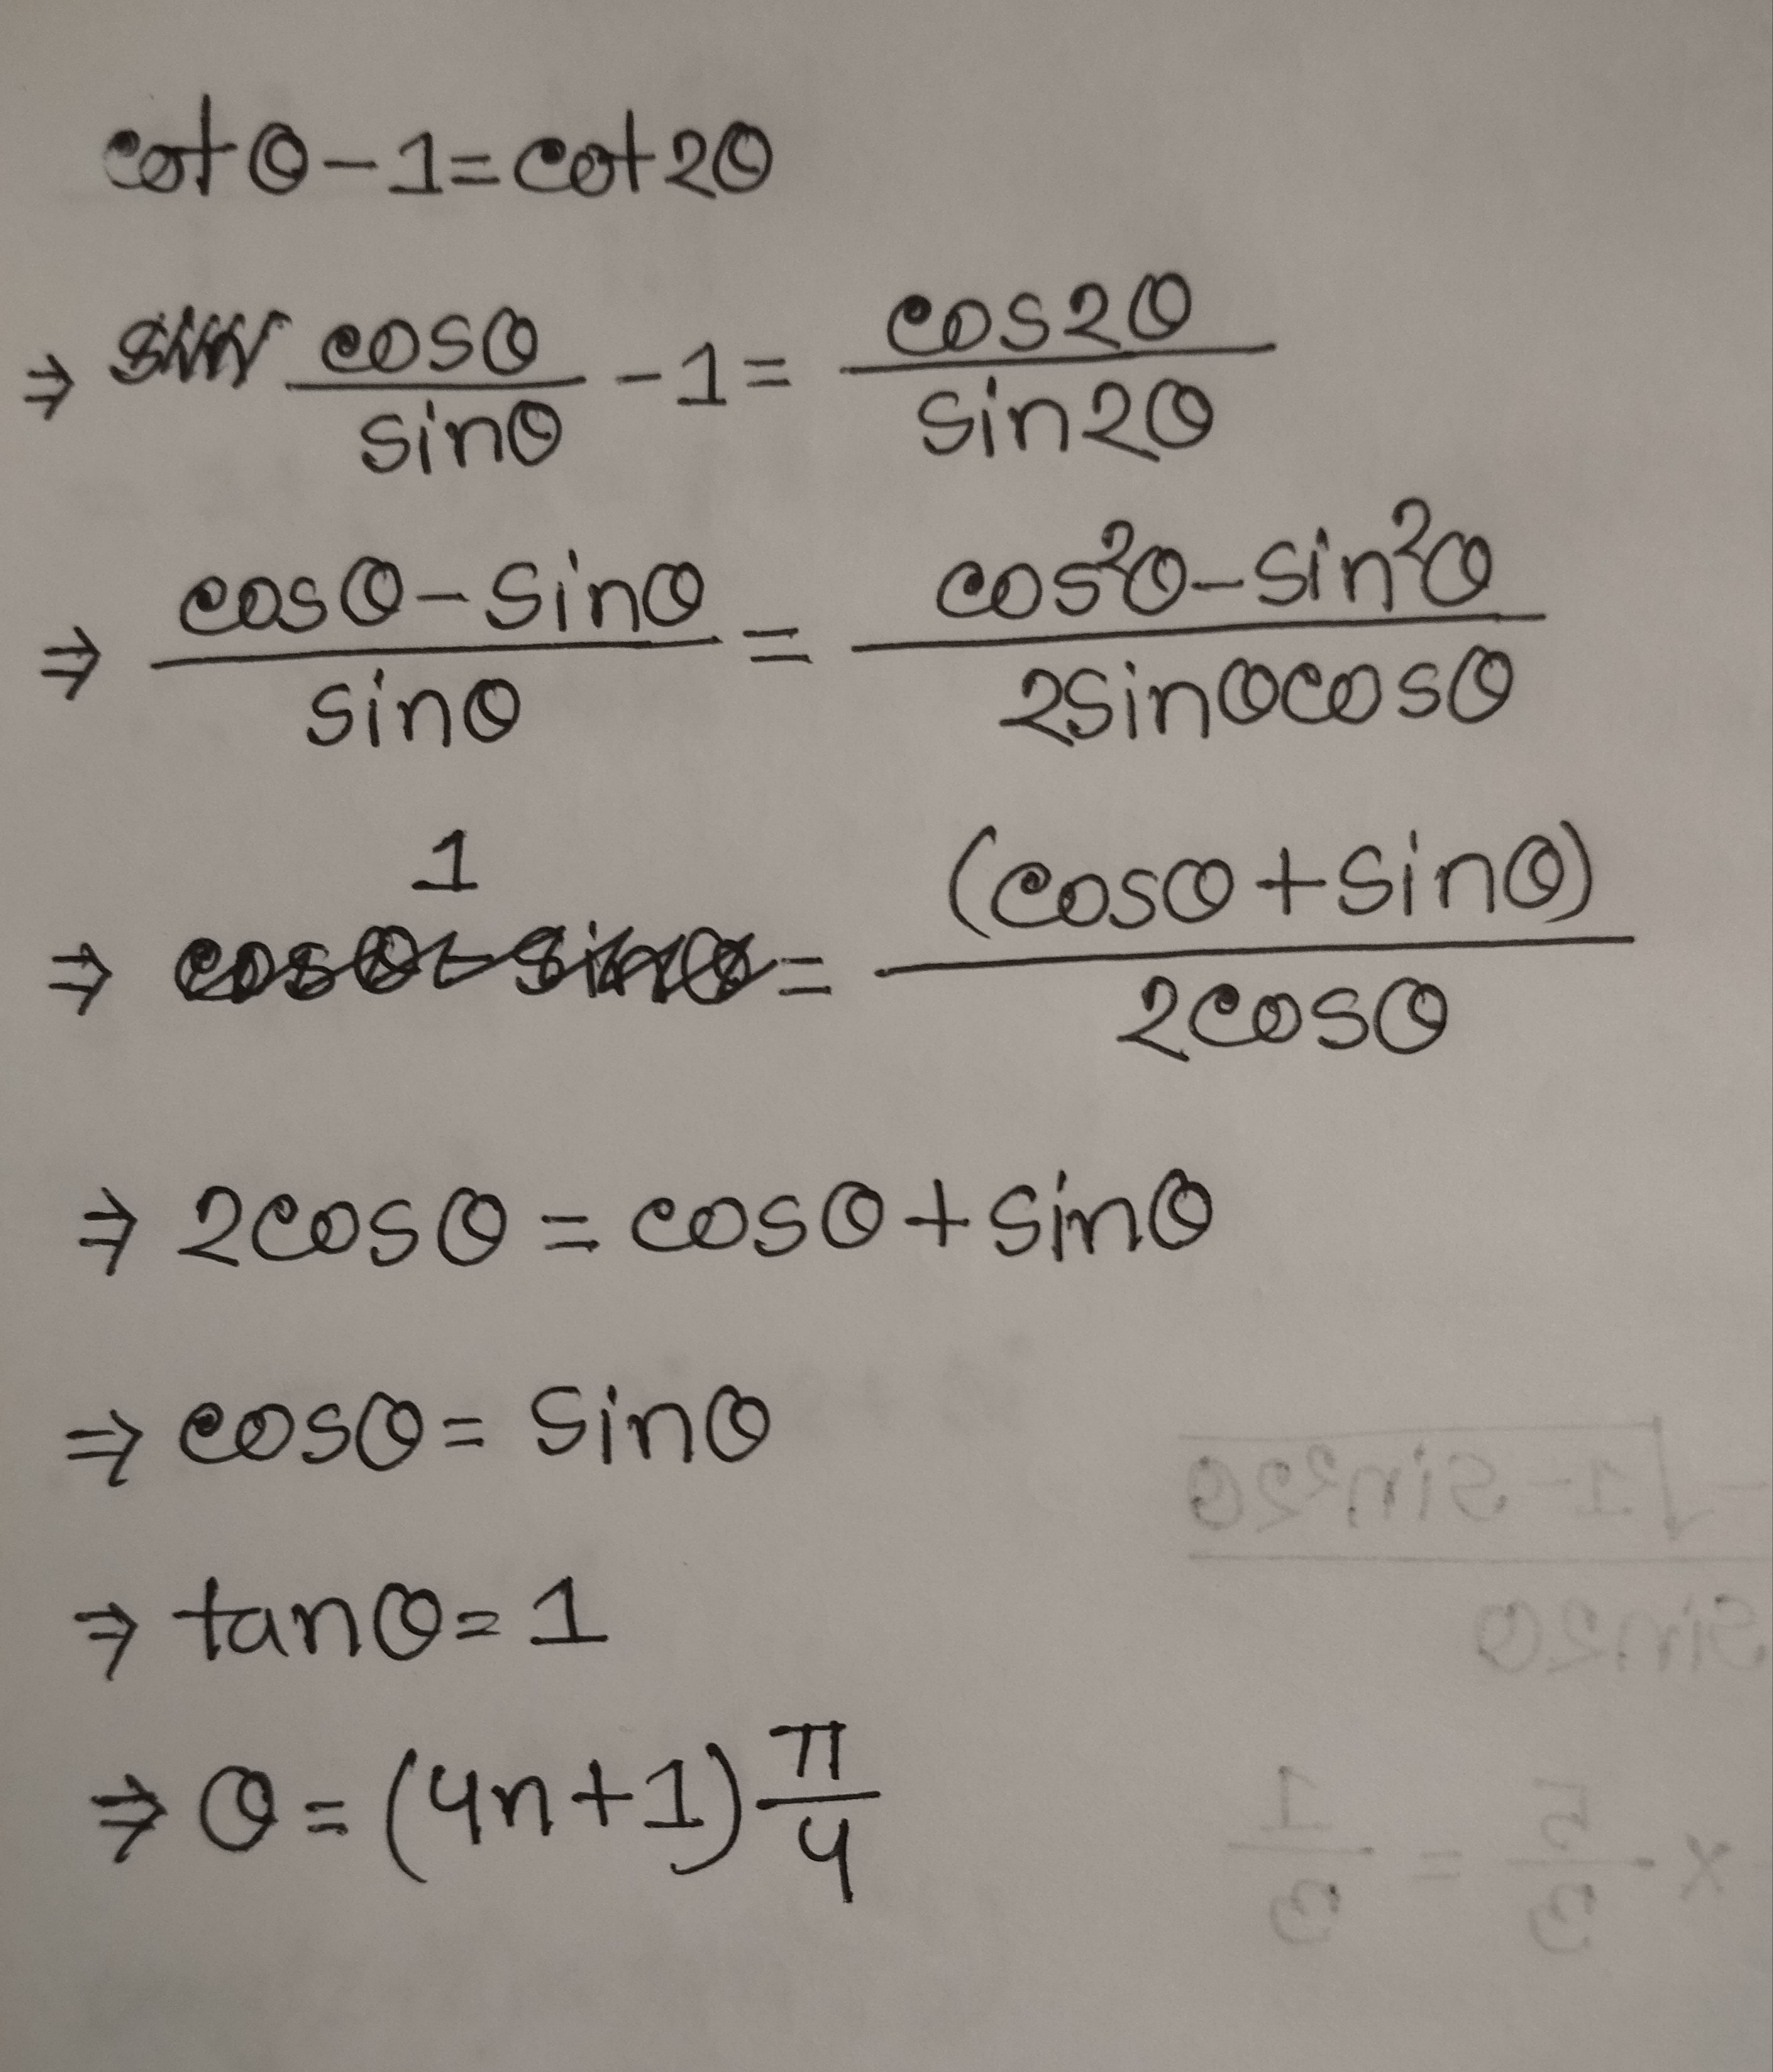 cotθ-1=cot2θ
⇒ cosθ/sinθ -1= cos2θ/sin2θ
⇒ (cosθ-sinθ)/sinθ = (cos²θ-sin²θ)/(2sinθcosθ)
⇒ 1 = (cosθ+sinθ)/(2cosθ)
⇒ 2cosθ = cosθ+sinθ
⇒ cosθ= sinθ
⇒ tanθ=1
⇒ θ=(4n+1)π/4